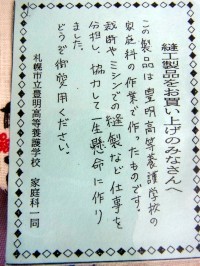 縫工製品をお買い上げのみなさんへ
この製品は豊明高等養護学校の
家庭科の作業で作ったものです。
裁断やミシンでの縫製など仕事を
分担し、協力して一生懸命に作り
ました。
どうぞ御愛用ください。
札幌市立豊明高等養護学校 家庭科一同